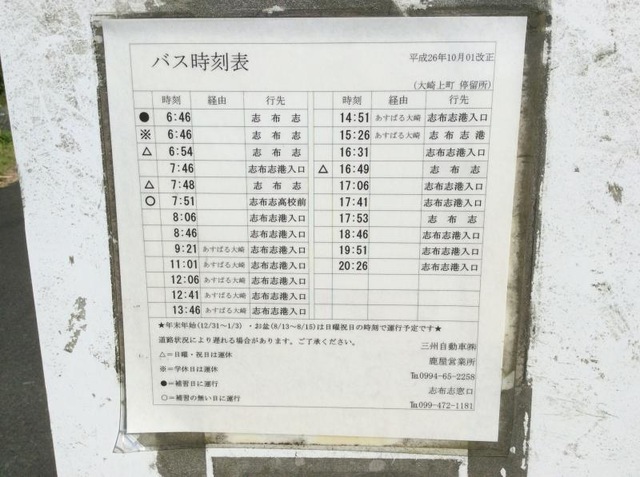 バス時刻表
平成26年10月01改正
(大崎上町 停留所)
時刻 経由 行先
● 6:46 志布志
※ 6:46 志布志
△ 6:54 志布志
7:46 志布志港入口
△ 7:48 志布志
○ 7:51 志布志高校前
8:06 志布志港入口
8:46 志布志港入口
9:21 あすぱる大崎 志布志港入口
11:01 あすぱる大崎 志布志港入口
12:06 あすぱる大崎 志布志港入口
12:41 あすぱる大崎 志布志港入口
13:46 あすぱる大崎 志布志港入口
時刻 経由 行先
14:51 あすぱる大崎 志布志港入口
15:26 あすぱる大崎 志布志港
16:31 志布志港入口
△ 16:49 志布志
17:06 志布志港入口
17:41 志布志港入口
17:53 志布志
18:46 志布志港入口
19:51 志布志港入口
20:26 志布志港入口
★年末年始(12/31～1/3)・お盆(8/13～8/15)は日曜祝日の時刻で運行予定です★
道路状況により遅れる場合があります。ご了承ください。
△＝日曜・祝日は運休
※＝学休日は運休
●＝補習日に運行
○＝補習の無い日に運行
三州自動車㈱
鹿屋営業所
℡0994-65-2258
志布志窓口
℡099-472-1181